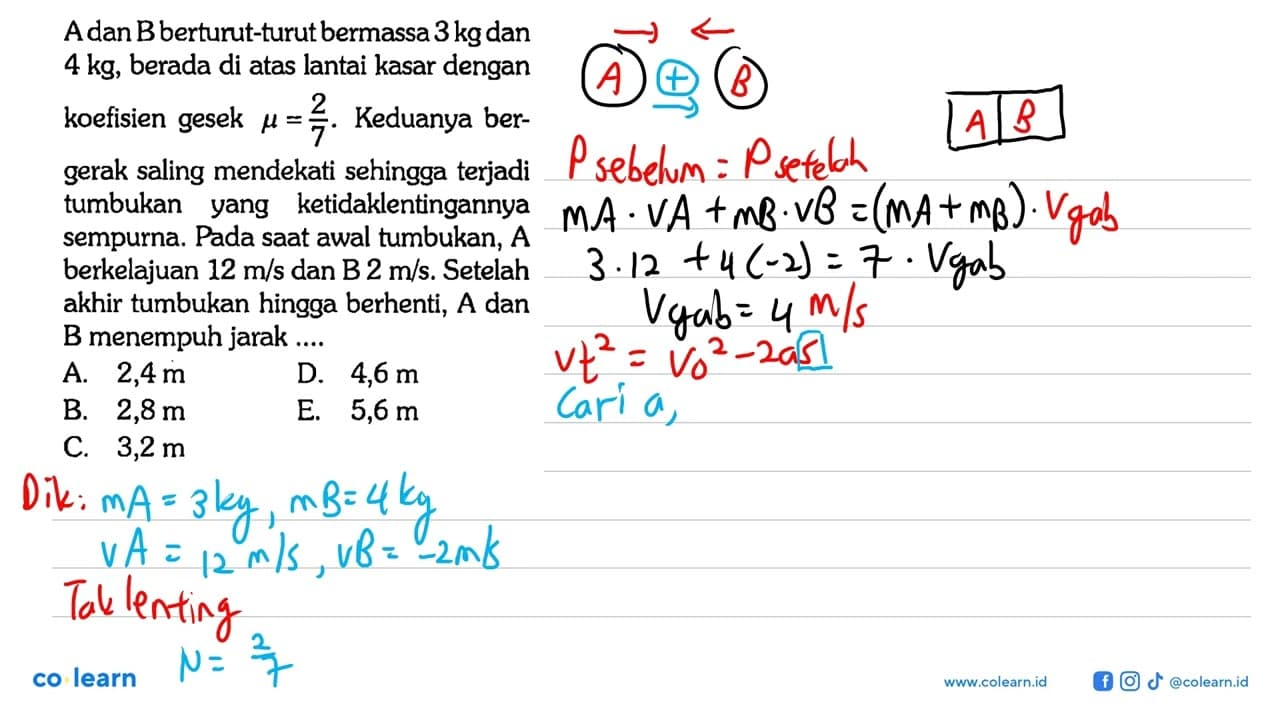 A dan B berturut-turut bermassa 3 kg dan
4 kg, berada di atas lantai kasar dengan
koefisien gesek μ = 2/7. Keduanya ber-
gerak saling mendekati sehingga terjadi
tumbukan yang ketidaklentingannya
sempurna. Pada saat awal tumbukan, A
berkelajuan 12 m/s dan B 2 m/s. Setelah
akhir tumbukan hingga berhenti, A dan
B menempuh jarak ....
A. 2,4 m D. 4,6 m
B. 2,8 m E. 5,6 m
C. 3,2 m
Dik: mA = 3 kg, mB = 4 kg
vA = 12 m/s, vB = -2 m/s
Tak lenting
μ = 2/7
A + B
A B
P sebelum = P setelah
mA · vA + mB · vB = (mA + mB) · Vgab
3 · 12 + 4 (-2) = 7 · Vgab
Vgab = 4 m/s
vt² = vo² - 2as
Cari a,
co learn
www.colearn.id
@colearn.id